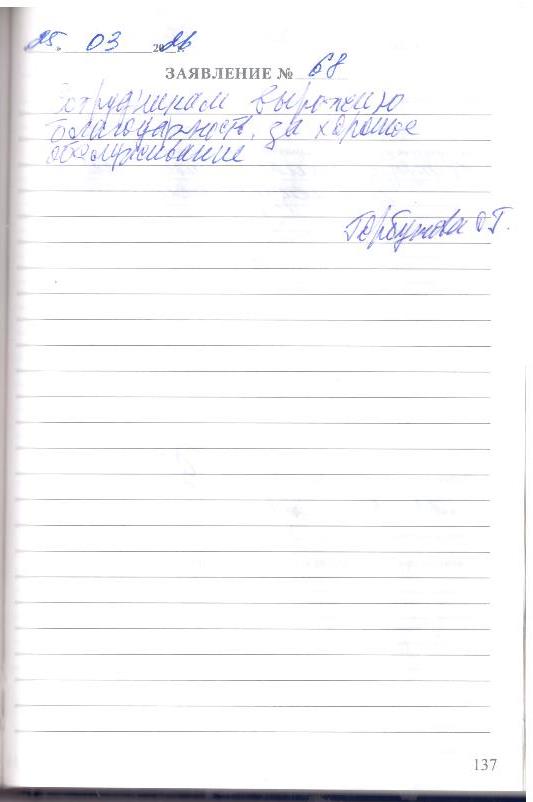 25. 03 2026
ЗАЯВЛЕНИЕ № 68
Сотрудникам выражаю
благодарность, за хорошее
обслуживание
О.Г.
137